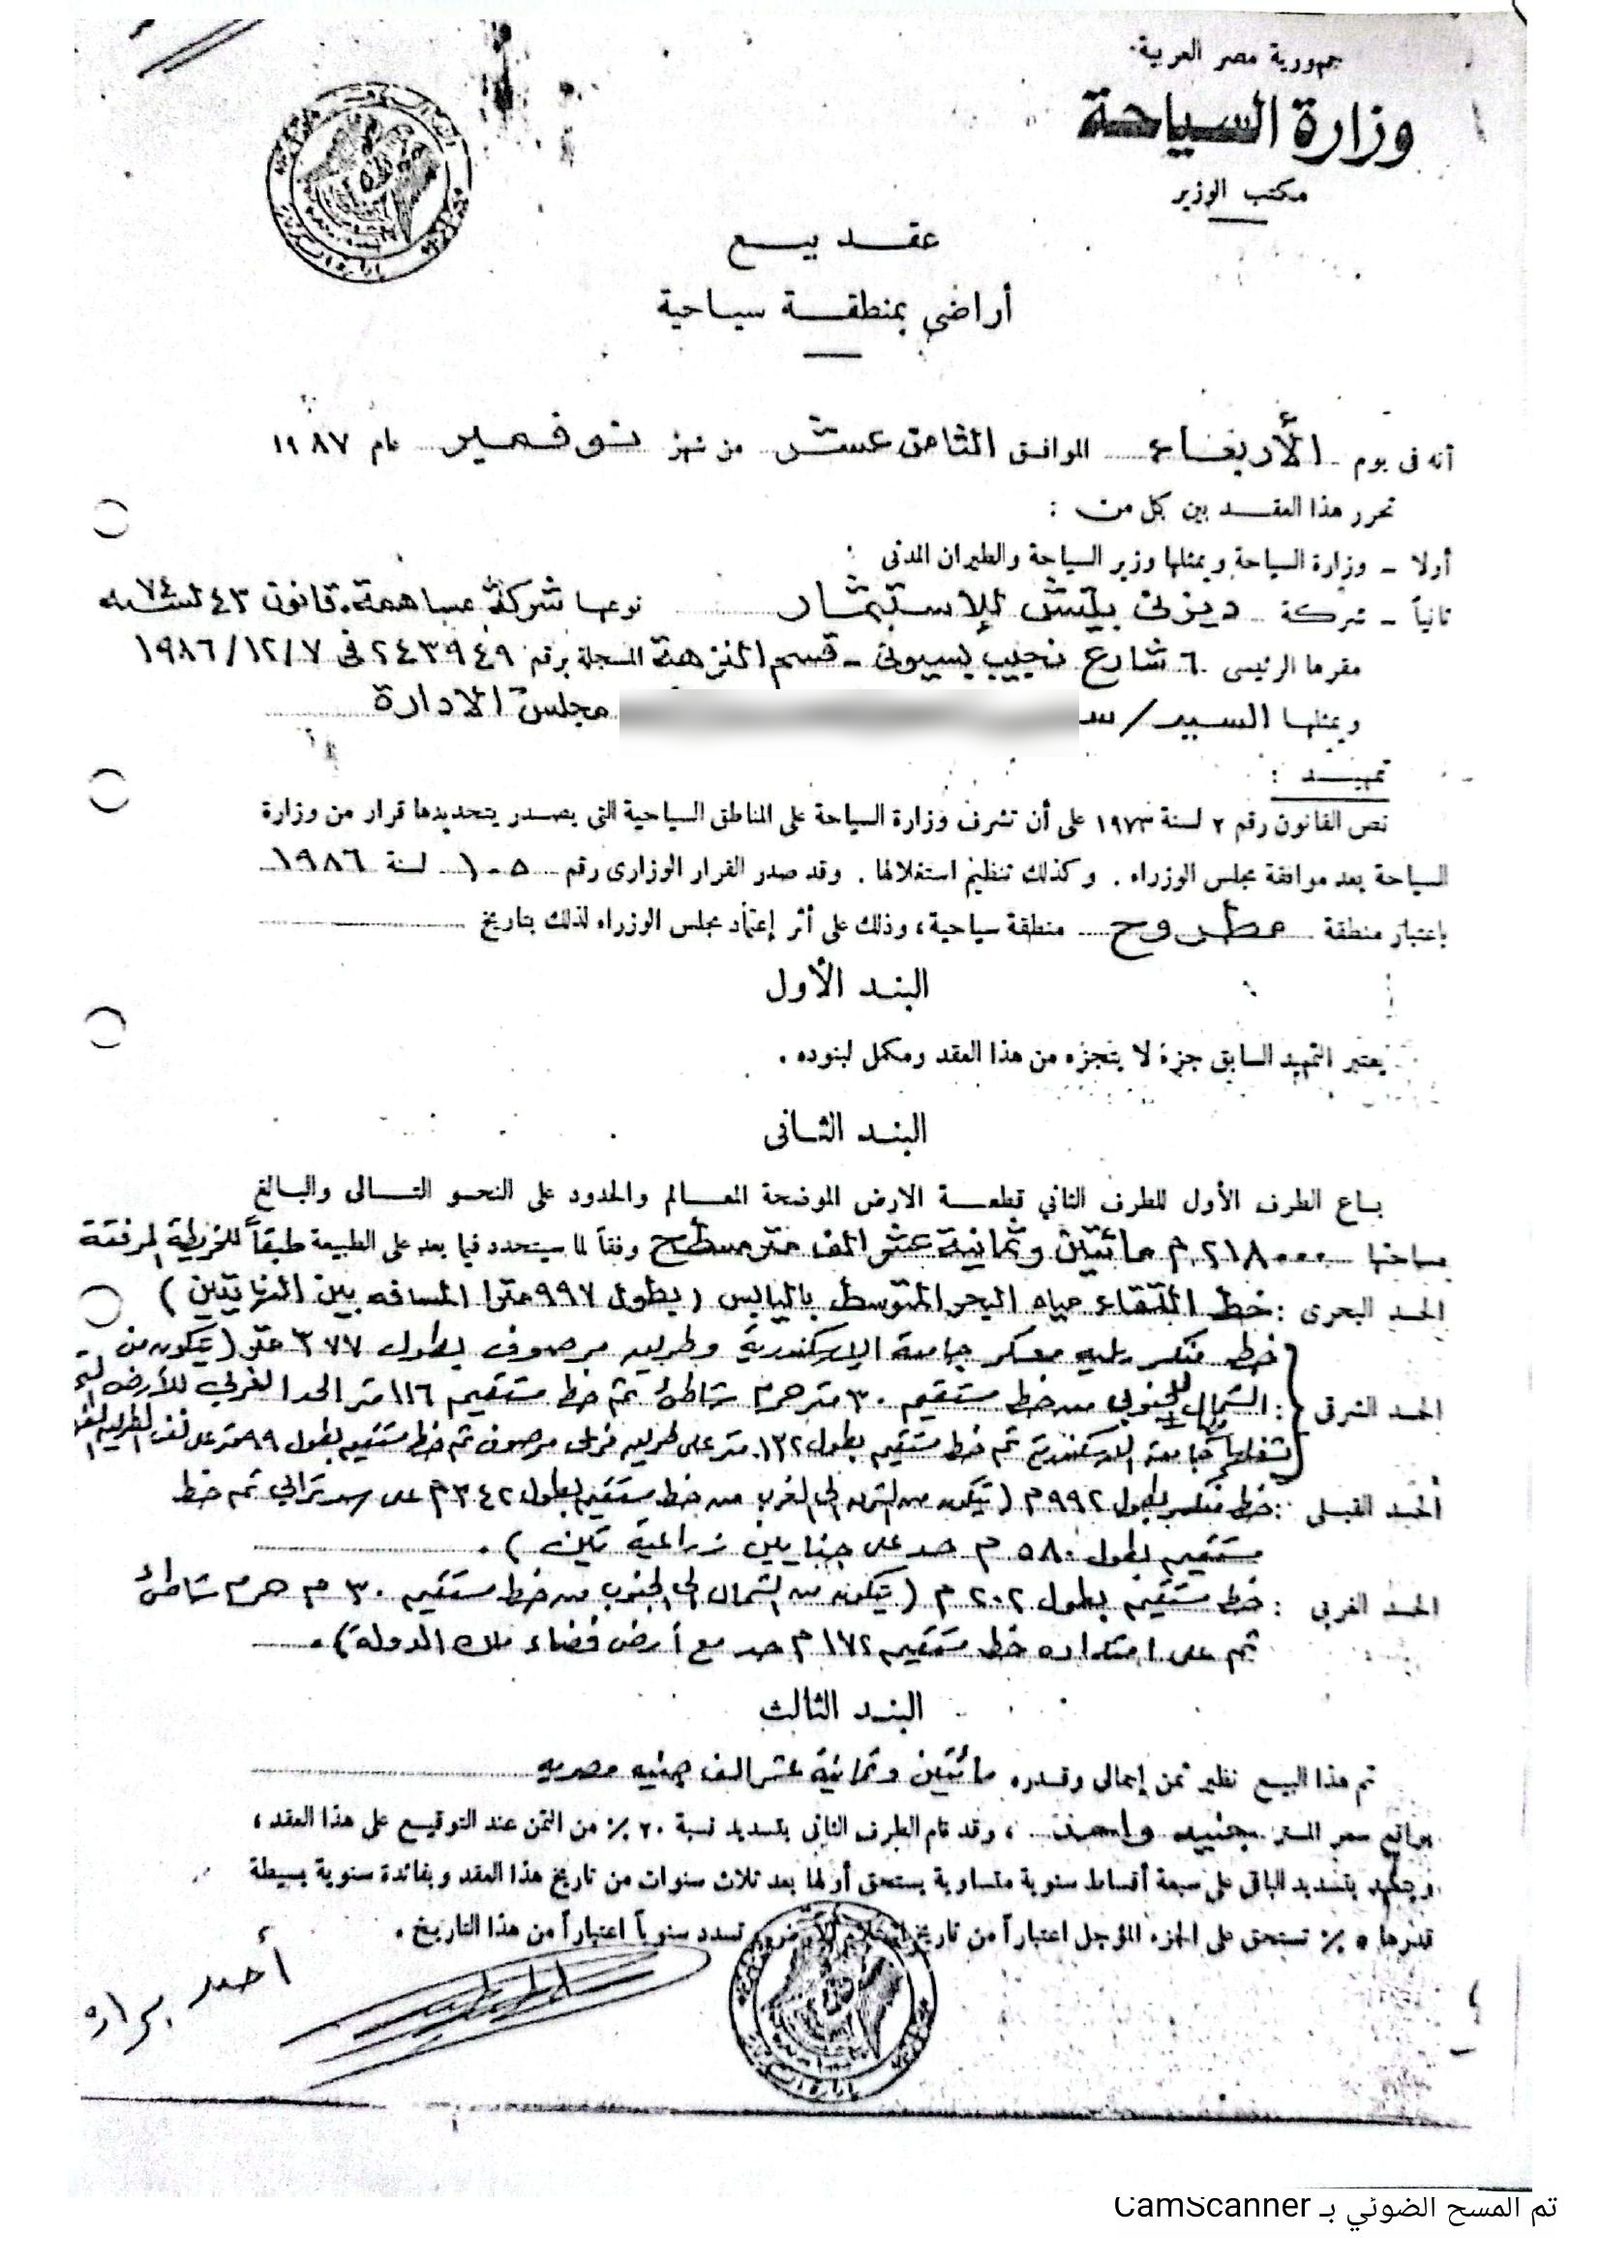 جمهورية مصر العربية
وزارة السياحة
مكتب الوزير
عقد بيع
أراضى بمنطقة سياحية
أنه فى يوم الأربعاء الموافق الثامن عشر من شهر نوفمبر عام ١٩٨٧
تحرر هذا العقد بين كل من :
أولا - وزارة السياحة ويمثلها وزير السياحة والطيران المدنى
ثانياً - شركة ديزنى بيتش للإستثمار نوعها شركة مساهمة قانون ٤٣ لسنة ٧٤
مقرها الرئيسى ٦ شارع نجيب بسيونى - قسم النزهة المسجلة برقم ٢٤٣٩٤٩ فى ١٩٨٦/١٢/٧
ويمثلها السيد / مجلس الادارة
تمهيد :
نص القانون رقم ٢ لسنة ١٩٧٣ على أن تشرف وزارة السياحة على المناطق السياحية التى يصدر بتحديدها قرار من وزارة
السياحة بعد موافقة مجلس الوزراء . وكذلك تنظيم استغلالها . وقد صدر القرار الوزارى رقم ١٠٥ لسنة ١٩٨٦
باعتبار منطقة مطروح منطقة سياحية ، وذلك على أثر إعتماد مجلس الوزراء لذلك بتاريخ
البند الأول
يعتبر التمهيد السابق جزء لا يتجزء من هذا العقد ومكمل لبنوده .
البند الثانى
باع الطرف الأول للطرف الثاني قطعة الارض الموضحة المعالم والحدود على النحو التالى والبالغ
مساحتها ٢١٨٠٠٠ م مائتين وثمانية عشر الف متر مسطح وفقاً لما سيتحدد فيما بعد على الطبيعة طبقاً للخريطة المرفقة
الحد البحرى : خط التقاء مياه البحر المتوسط باليابس ( بطول ٩٩٧ مترا المسافه بين النهايتين )
خط منكسر يليه معسكر جامعة الاسكندرية وطريق مرصوف بطول ٣٧٧ متر ( يتكون من
الحد الشرقى : الشمال للجنوب من خط مستقيم ٣٠ متر حرم شاطئ ثم خط مستقيم ١١٦ متر الحد الغربي للأرض التى
تشغلها جامعة الاسكندرية ثم خط مستقيم بطول ١٣٢ متر على طريق فرعى مرصوف ثم خط مستقيم بطول ٩٩ متر على نفس الطريق
الحد القبلى : خط منكسر بطول ٩٩٢ م ( يتكون من الشرق الى الغرب من خط مستقيم بطول ٣٤٢ م على سد ترابي ثم خط
مستقيم بطول ٥٨٠ م حد على جناين زراعية تين ) .
الحد الغربي : خط مستقيم بطول ٢٠٢ م ( يتكون من الشمال الى الجنوب من خط مستقيم ٣٠ م حرم شاطئ
ثم على امتداده خط مستقيم ١٧٢ م حد مع أرض فضاء ملك الدولة ) .
البند الثالث
تم هذا البيع نظير ثمن إجمالى وقدره مائتين وثمانية عشر الف جنيه مصريه
بواقع سعر المتر جنيه واحد ، وقد قام الطرف الثانى بتسديد نسبة ٢٠ ٪ من الثمن عند التوقيع على هذا العقد ،
بتسديد الباقى على سبعة أقساط سنوية متساوية يستحق أولها بعد ثلاث سنوات من تاريخ هذا العقد وبفائدة سنوية بسيطة
قدرها ٥ ٪ تستحق على الجزء المؤجل اعتباراً من تاريخ تسدد سنوياً اعتباراً من هذا التاريخ .
أحمد
تم المسح الضوئي بـ CamScanner